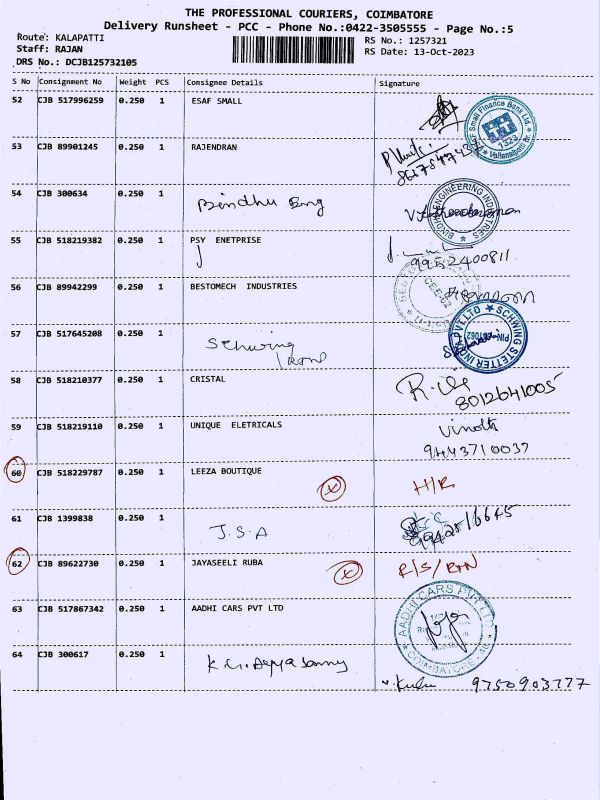 THE PROFESSIONAL COURIERS, COIMBATORE
Delivery Runsheet - PCC - Phone No.:0422-3505555 - Page No.:5
Route: KALAPATTI
RS No.: 1257321
Staff: RAJAN
RS Date: 13-Oct-2023
DRS No.: DCJB125732105
S No Consignment No Weight PCS Consignee Details Signature
52 CJB 517996259 0.250 1 ESAF SMALL
53 CJB 89901245 0.250 1 RAJENDRAN
54 CJB 300634 0.250 1 Bindhu Eng
BINDHU ENGINEERING INDUSTRIES
55 CJB 518219382 0.250 1 PSY ENETPRISE
9952400811
56 CJB 89942299 0.250 1 BESTOMECH INDUSTRIES
57 CJB 517645208 0.250 1 Schwing
58 CJB 518210377 0.250 1 CRISTAL
8012641005
59 CJB 518219110 0.250 1 UNIQUE ELETRICALS
Vinoth
9443710037
60 CJB 518229787 0.250 1 LEEZA BOUTIQUE
H/R
61 CJB 1399838 0.250 1 J.S.A
9942816645
62 CJB 89622730 0.250 1 JAYASEELI RUBA
R/S/RTN
63 CJB 517867342 0.250 1 AADHI CARS PVT LTD
AADHI CARS PVT LTD
COIMBATORE-48
64 CJB 300617 0.250 1
9750903777